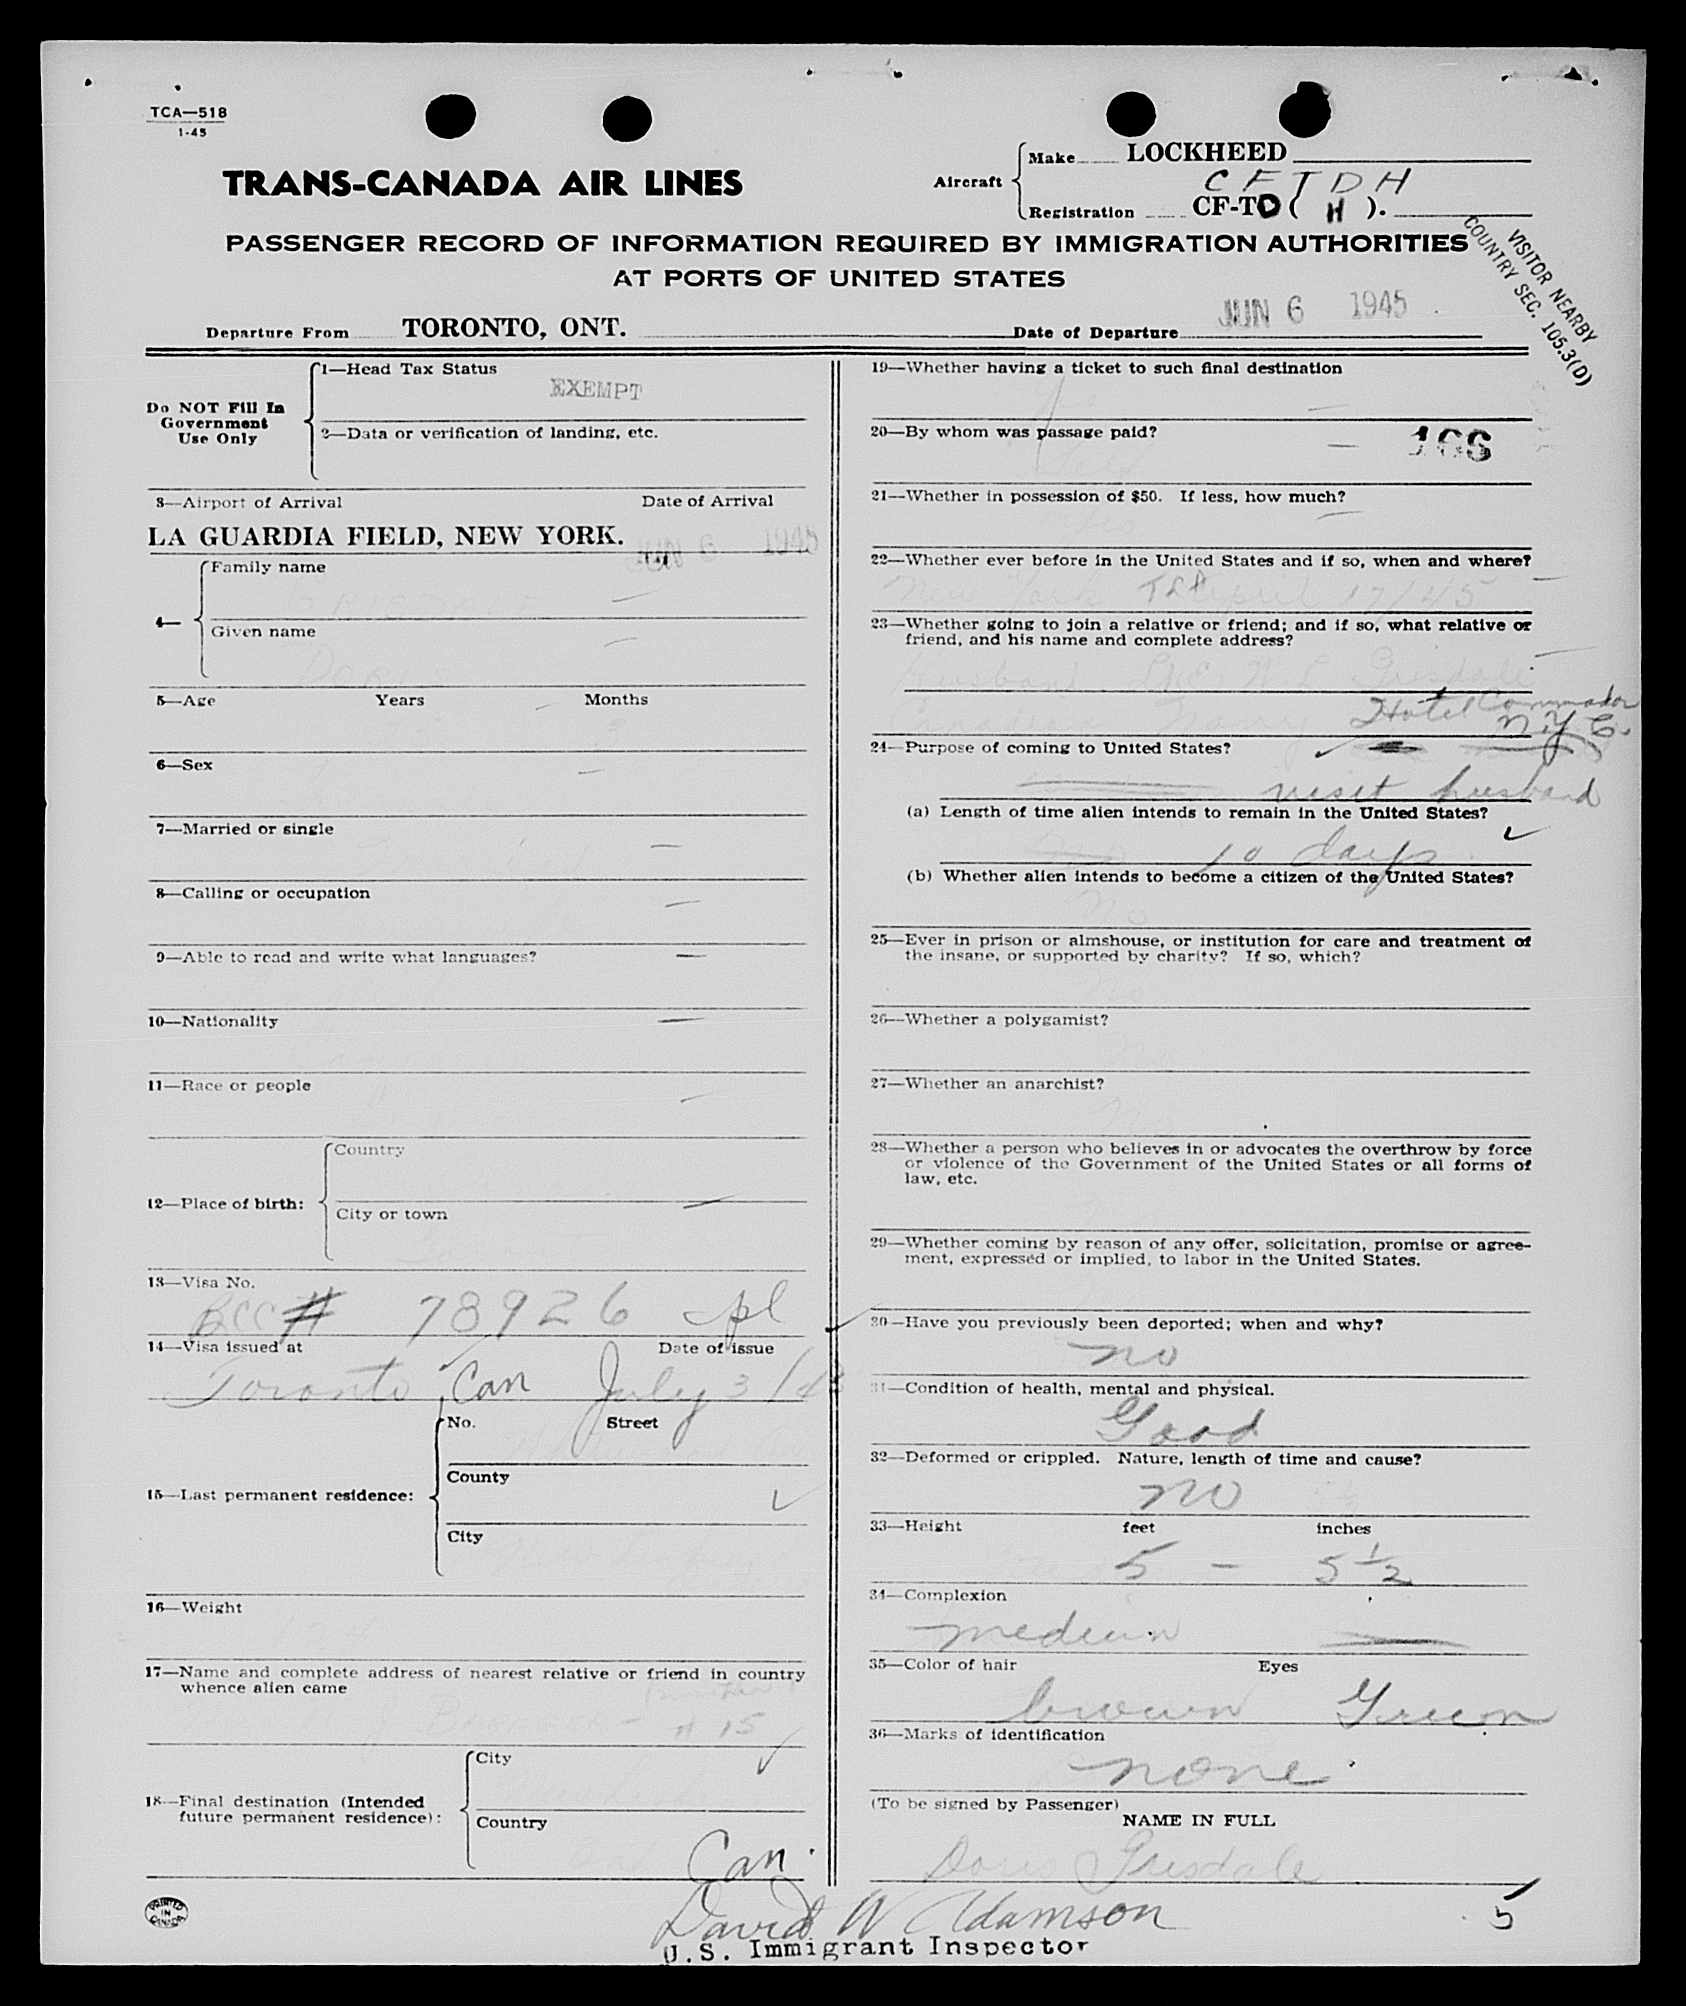 TCA—518
1-45
TRANS-CANADA AIR LINES
Aircraft
Make LOCKHEED
C F T D H
Registration CF-TD ( H ).
PASSENGER RECORD OF INFORMATION REQUIRED BY IMMIGRATION AUTHORITIES
AT PORTS OF UNITED STATES
VISITOR NEARBY
COUNTRY SEC. 105.3(D)
Departure From TORONTO, ONT. Date of Departure JUN 6 1945
Do NOT Fill In
Government
Use Only
1—Head Tax Status
EXEMPT
2—Data or verification of landing, etc.
3—Airport of Arrival Date of Arrival
LA GUARDIA FIELD, NEW YORK. JUN 6 1945
4—
Family name
GRISDALE
Given name
DORIS
5—Age Years Months
6—Sex
7—Married or single
Married
8—Calling or occupation
9—Able to read and write what languages?
10—Nationality
11—Race or people
12—Place of birth:
Country
City or town
13—Visa No.
BCC# 78926 cpl
14—Visa issued at Date of issue
Toronto, Can July 3/43
15—Last permanent residence:
No. Street
County
City
16—Weight
17—Name and complete address of nearest relative or friend in country
whence alien came
# 15
18—Final destination (Intended
future permanent residence):
City
Country
Can.
19—Whether having a ticket to such final destination
20—By whom was passage paid?
166
Self
21—Whether in possession of $50. If less, how much?
Yes
22—Whether ever before in the United States and if so, when and where?
New York April 17/45
23—Whether going to join a relative or friend; and if so, what relative or
friend, and his name and complete address?
Husband W L Grisdale
Canadian Navy Hotel Commodor
N.Y.C.
24—Purpose of coming to United States?
visit husband
(a) Length of time alien intends to remain in the United States?
10 days
(b) Whether alien intends to become a citizen of the United States?
No
25—Ever in prison or almshouse, or institution for care and treatment of
the insane, or supported by charity? If so, which?
No
26—Whether a polygamist?
No
27—Whether an anarchist?
No
28—Whether a person who believes in or advocates the overthrow by force
or violence of the Government of the United States or all forms of
law, etc.
29—Whether coming by reason of any offer, solicitation, promise or agree-
ment, expressed or implied, to labor in the United States.
30—Have you previously been deported; when and why?
no
31—Condition of health, mental and physical.
Good
32—Deformed or crippled. Nature, length of time and cause?
no
33—Height feet inches
5 - 5 1/2
34—Complexion
medium
35—Color of hair Eyes
brown Green
36—Marks of identification
none.
(To be signed by Passenger)
NAME IN FULL
Doris Grisdale
David W Adamson
U.S. Immigrant Inspector
5
PRINTED
IN
CANADA